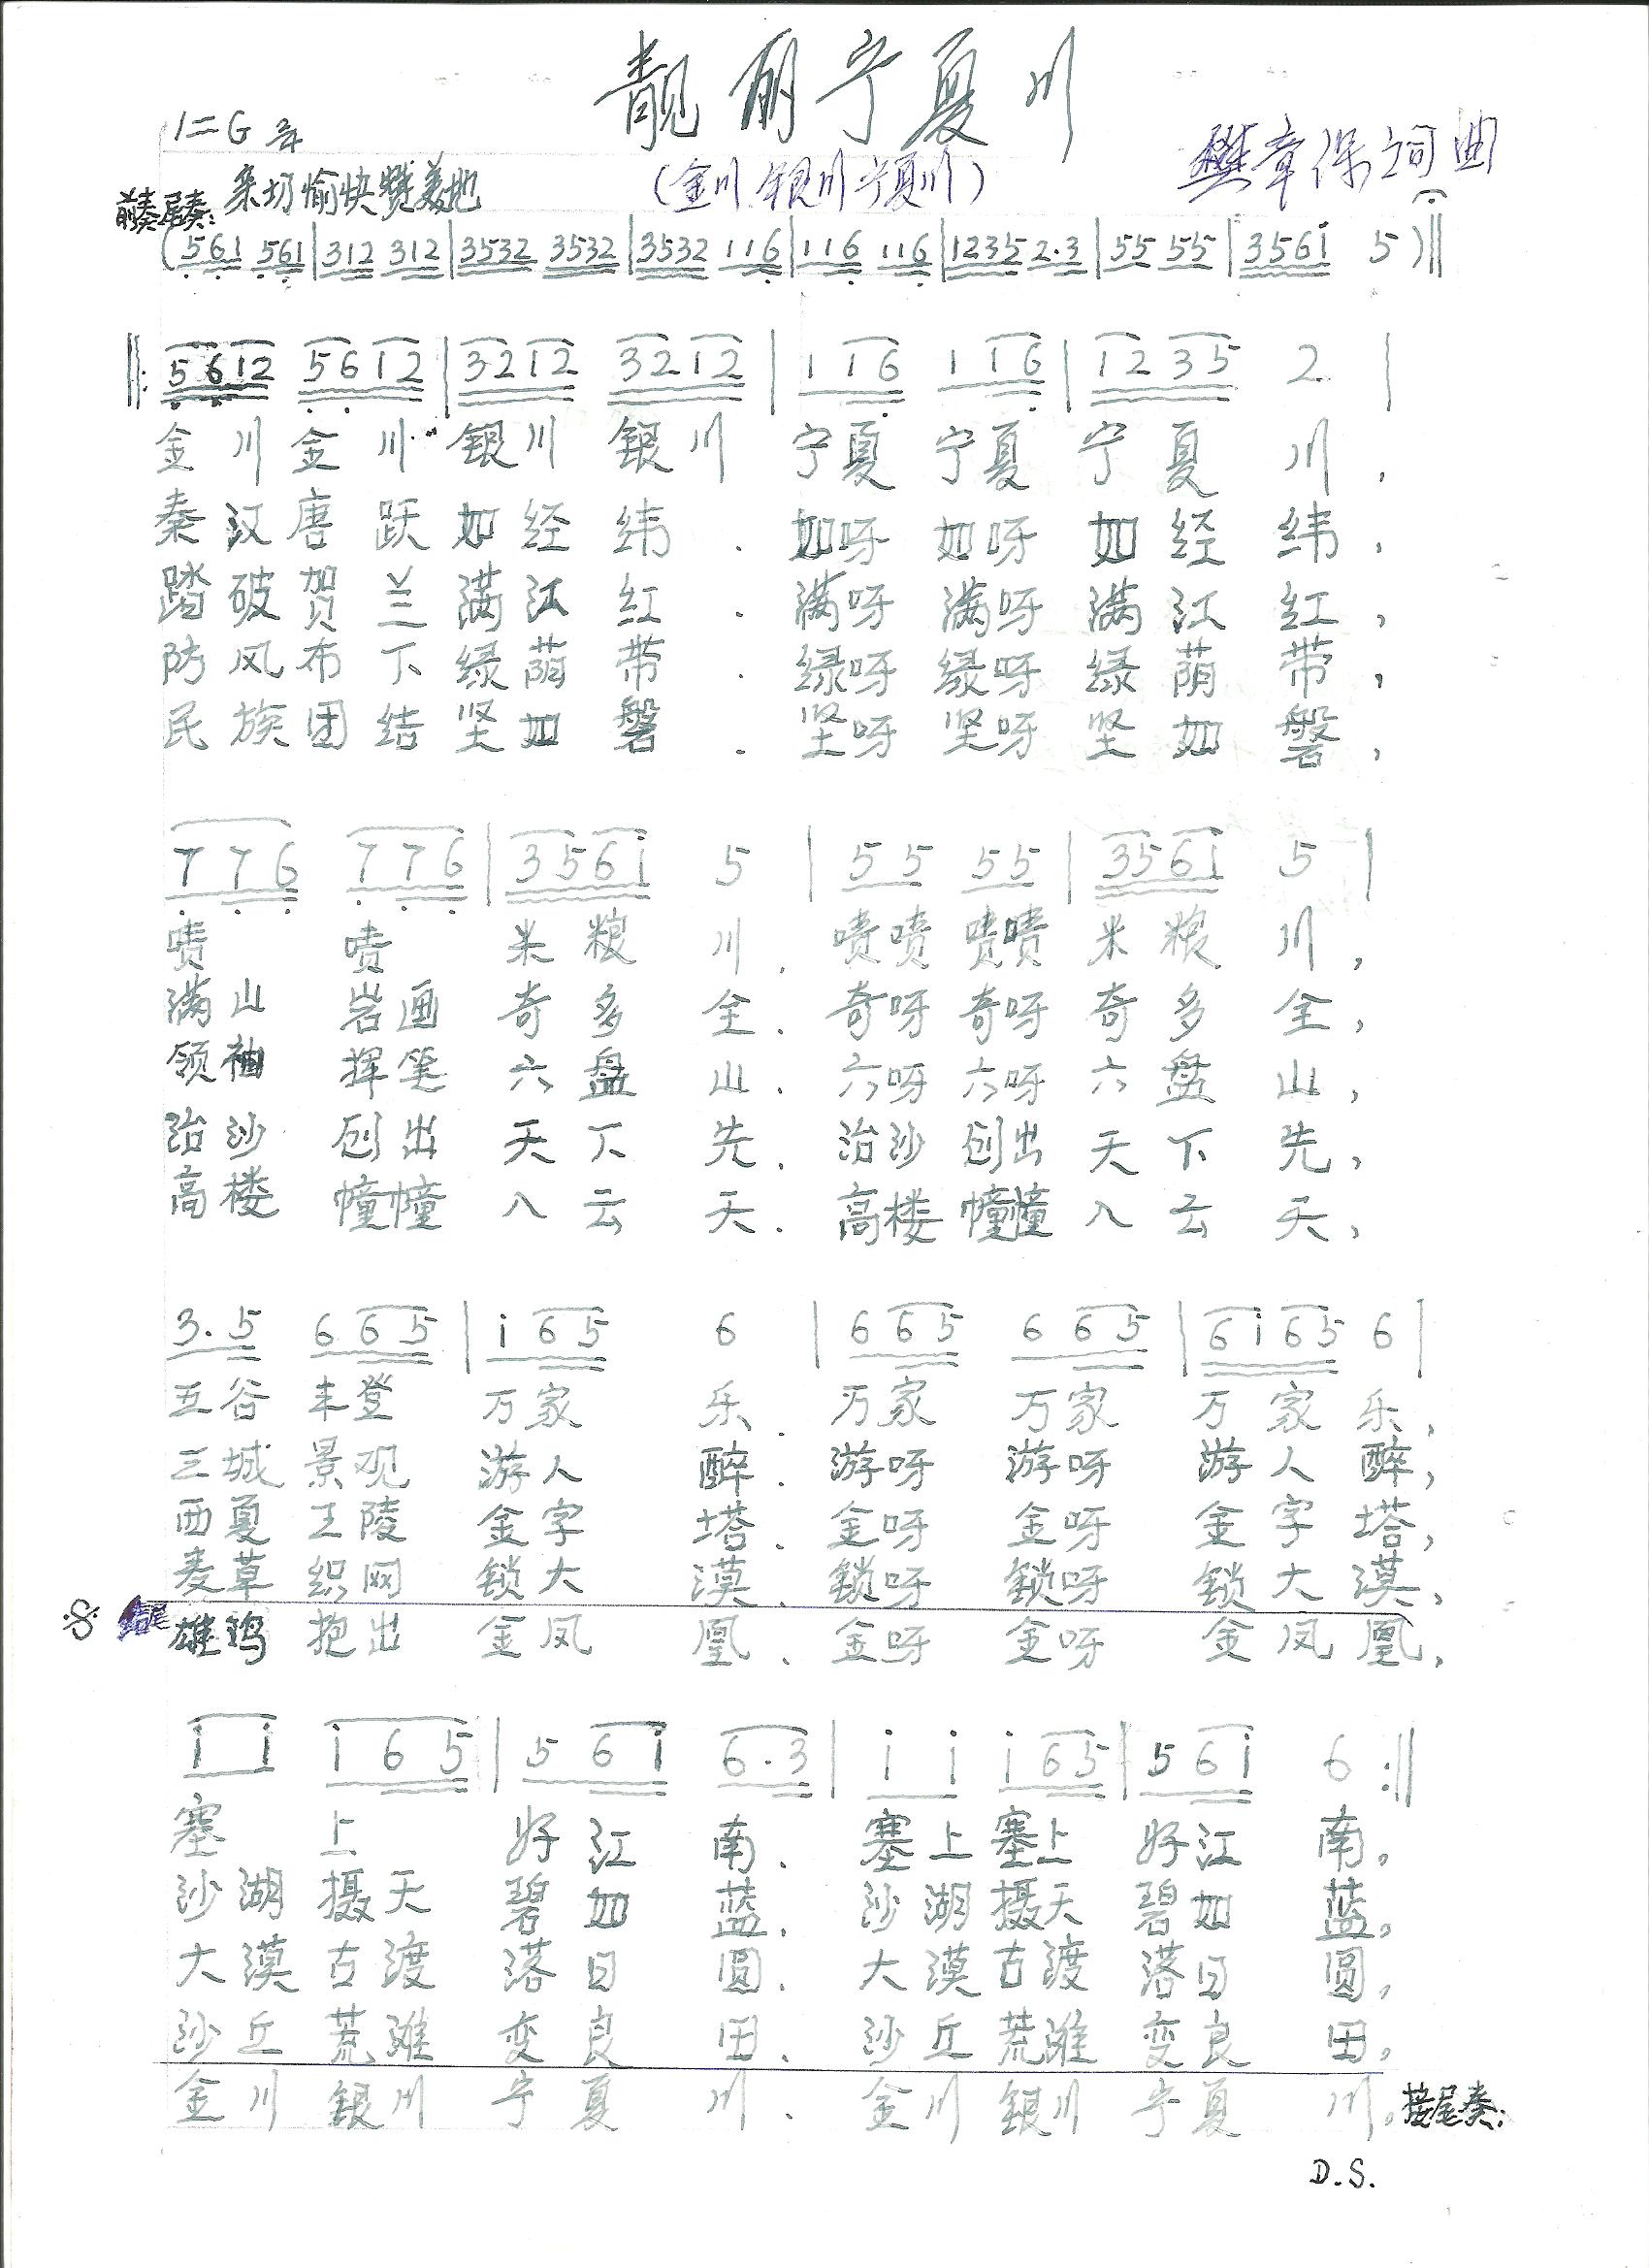 靓丽宁夏川
1=G 2/4
(金川银川宁夏川)
樊章保词曲
亲切愉快赞美地
前奏尾奏:
(561 561|312 312|3532 3532|3532 116|116 116|1235 2·3|55 55|3561 5)‖
‖:5612 5612|3212 3212|116 116|1235 2|
金川金川银川银川宁夏宁夏宁夏川,
秦汉唐跃如经纬.如呀如呀如经纬,
踏破贺兰满江红.满呀满呀满江红,
防风布下绿荫带.绿呀绿呀绿荫带,
民族团结坚如磐.坚呀坚呀坚如磐,
776 776|3561 5|55 55|3561 5|
啧啧米粮川.啧啧啧啧米粮川,
满山岩画奇多全.奇呀奇呀奇多全,
领袖挥笔六盘山.六呀六呀六盘山,
治沙创出天下先.治沙创出天下先,
高楼幢幢入云天.高楼幢幢入云天,
3.5 665|i65 6|665 665|6i65 6|
五谷丰登万家乐.万家万家万家乐,
三城景观游人醉.游呀游呀游人醉,
西夏王陵金字塔.金呀金呀金字塔,
麦草织网锁大漠.锁呀锁呀锁大漠,
结尾 雄鸡抱出金凤凰.金呀金呀金凤凰,
ii i65|56i 6·3|ii i65|56i 6:‖
塞上好江南.塞上塞上好江南,
沙湖摄天碧如蓝.沙湖摄天碧如蓝,
大漠古渡落日圆.大漠古渡落日圆,
沙丘荒滩变良田.沙丘荒滩变良田,
金川银川宁夏川.金川银川宁夏川,接尾奏:
D.S.